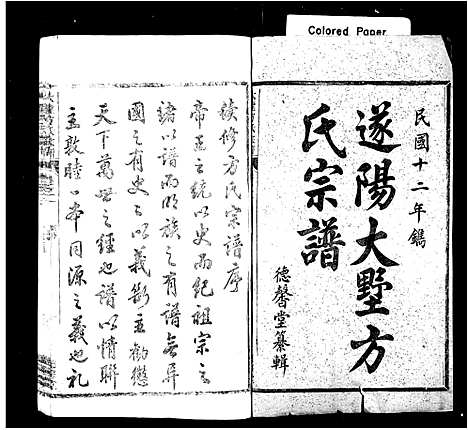 Colored Paper
民國十二年鐫
遂陽大墅方
氏宗譜
德馨堂纂輯
續修方氏宗譜序
帝王之統以史而紀祖宗之
諸以譜而明族之有譜無異
國之有史之以義衛主勸懲
天下萬世之經也譜以情聯
主敦睦一本同源之義也礼